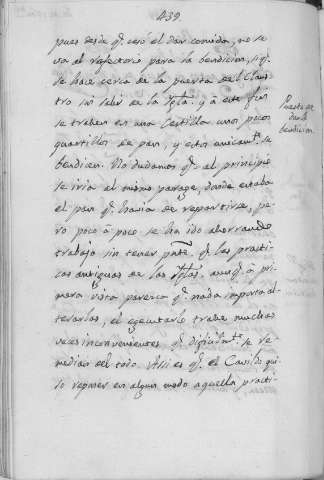 439.
pues desde q.e cesó el dar comida, no se
va al refectorio para la bendicion, si q.e
se hace cerca de la puerta del Claus
tro sin salir de la Ygl.a y á este fin
se trahen en una Cestilla unos pocos
quartillos de pan, y estos unicam.te se
bendicen. No dudamos q.e al principio
se iria al mismo parage, donde estaba
el pan q.e havia de repartirse, pe
ro poco á poco se ha ido ahorrando
trabajo sin tener pnte. q.e las practi
cas antiguas de las Ygl.as, aunq.e á pri
mera vista parezca q.e nada importa al
terarlas, el egecutarlo trahe muchas
veces inconvenientes q.e dificilm.te se re
median del todo. Assi es q.e el Cavildo qui
so reponer en algun modo aquella practi-
Puesto de
la
bendicion